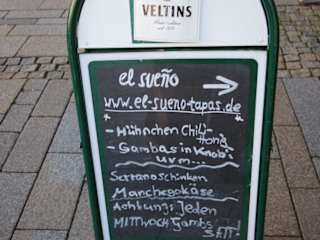 VELTINS
el sueño
www.el-sueno-tapas.de
- Hühnchen Chili-
Honig
- Gambas in Knob.
u.v.m....
Serranoschinken
Manchegokäse
Achtung: Jeden
MITTWOCH Gambas
SATT!